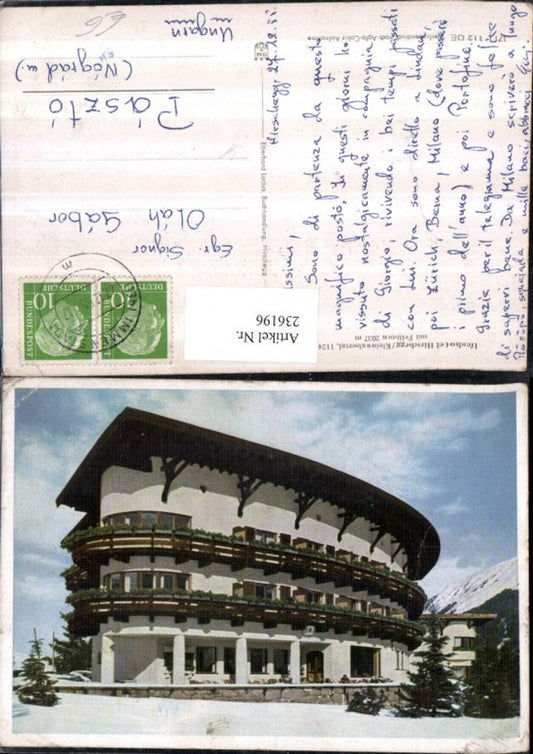 Hirschegg 27.12.
Sono di partenza da questo
magnifico posto, In questi giorni ho
vissuto nostalgicamente in compagnia
di Giorgio, rivivendo i bei tempi passati
con lui. Ora sono diretto a Lindau
poi Zürich, Berna, Milano (dove passerò
il primo dell'anno) e poi Portofino.
Grazie per il telegramma e sono felice
di sapervi bene. Da Milano scriverò a lungo
e mille baci, abbracci
Ifenhotel Hirschegg/Kleinwalsertal, 112
mit Fellhorn 2037 m
Eberhard Luetze, Buchhandlung, Hirschegg
112 OE
Agfa-Color Aufnahme
Egr. Signor
Oláh Gábor
Pásztó
(Nógrád m.)
Ungarn
DEUTSCHE
BUNDESPOST
10
DEUTSCHE
BUNDESPOST
10
Artikel Nr.
236196